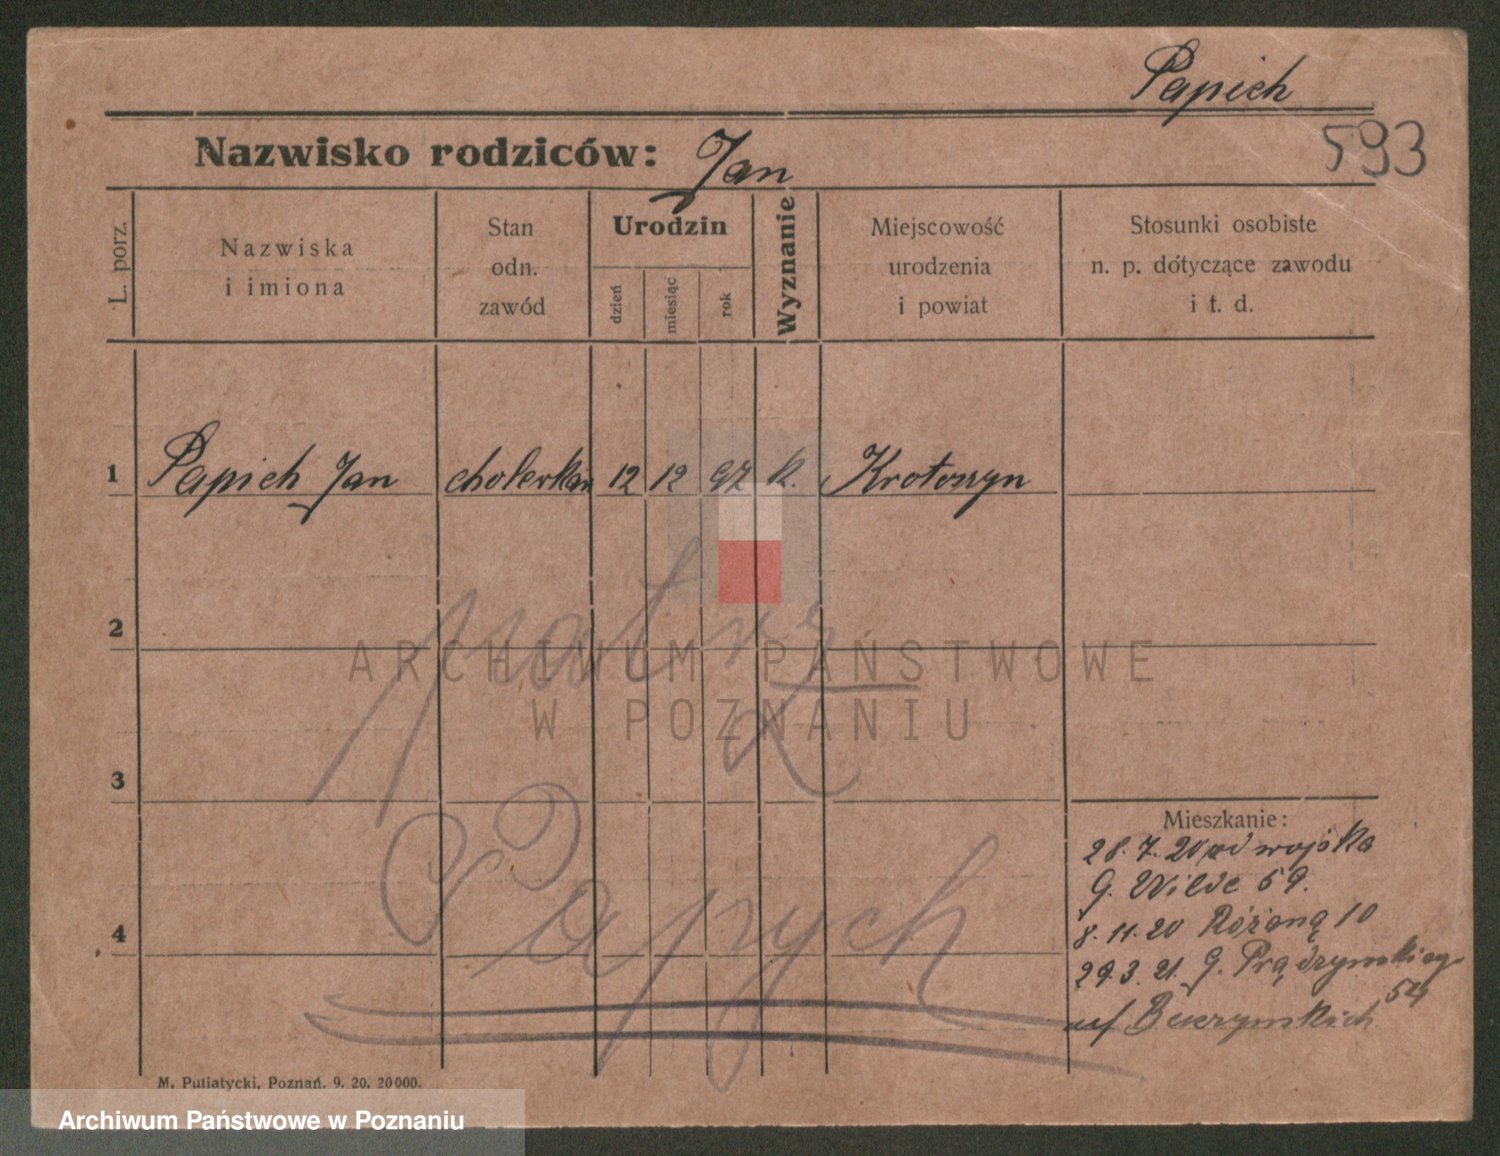 Papich
593
Nazwisko rodziców: Jan
L. porz.
Nazwiska
i imiona
Stan
odn.
zawód
Urodzin
dzień
miesiąc
rok
Wyznanie
Miejscowość
urodzenia
i powiat
Stosunki osobiste
n. p. dotyczące zawodu
i t. d.
1 Papich Jan cholewkar 12 12 97 k. Krotoszyn
2
patrz
ARCHIWUM PAŃSTWOWE
W POZNANIU
3
Papych
4
Mieszkanie:
28.7.20 od wojska
G. Wilde 59.
8.11.20 Różana 10
29.3.21. G. Prądzyńskiego
54
M. Putiatycki, Poznań. 9. 20. 20000.
Archiwum Państwowe w Poznaniu